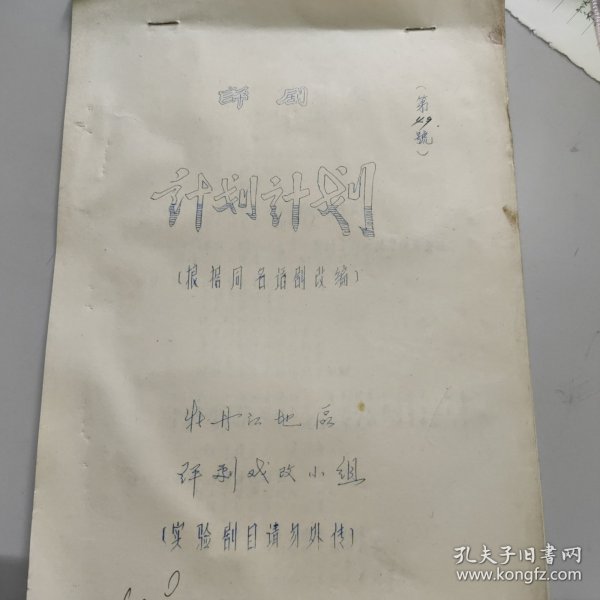 (第49号)
剧
计划计划
(根据同名话剧改编)
牡丹江地區
评剧戏改小组
(实验剧目请勿外传)
孔夫子旧书网
www.kongfz.com